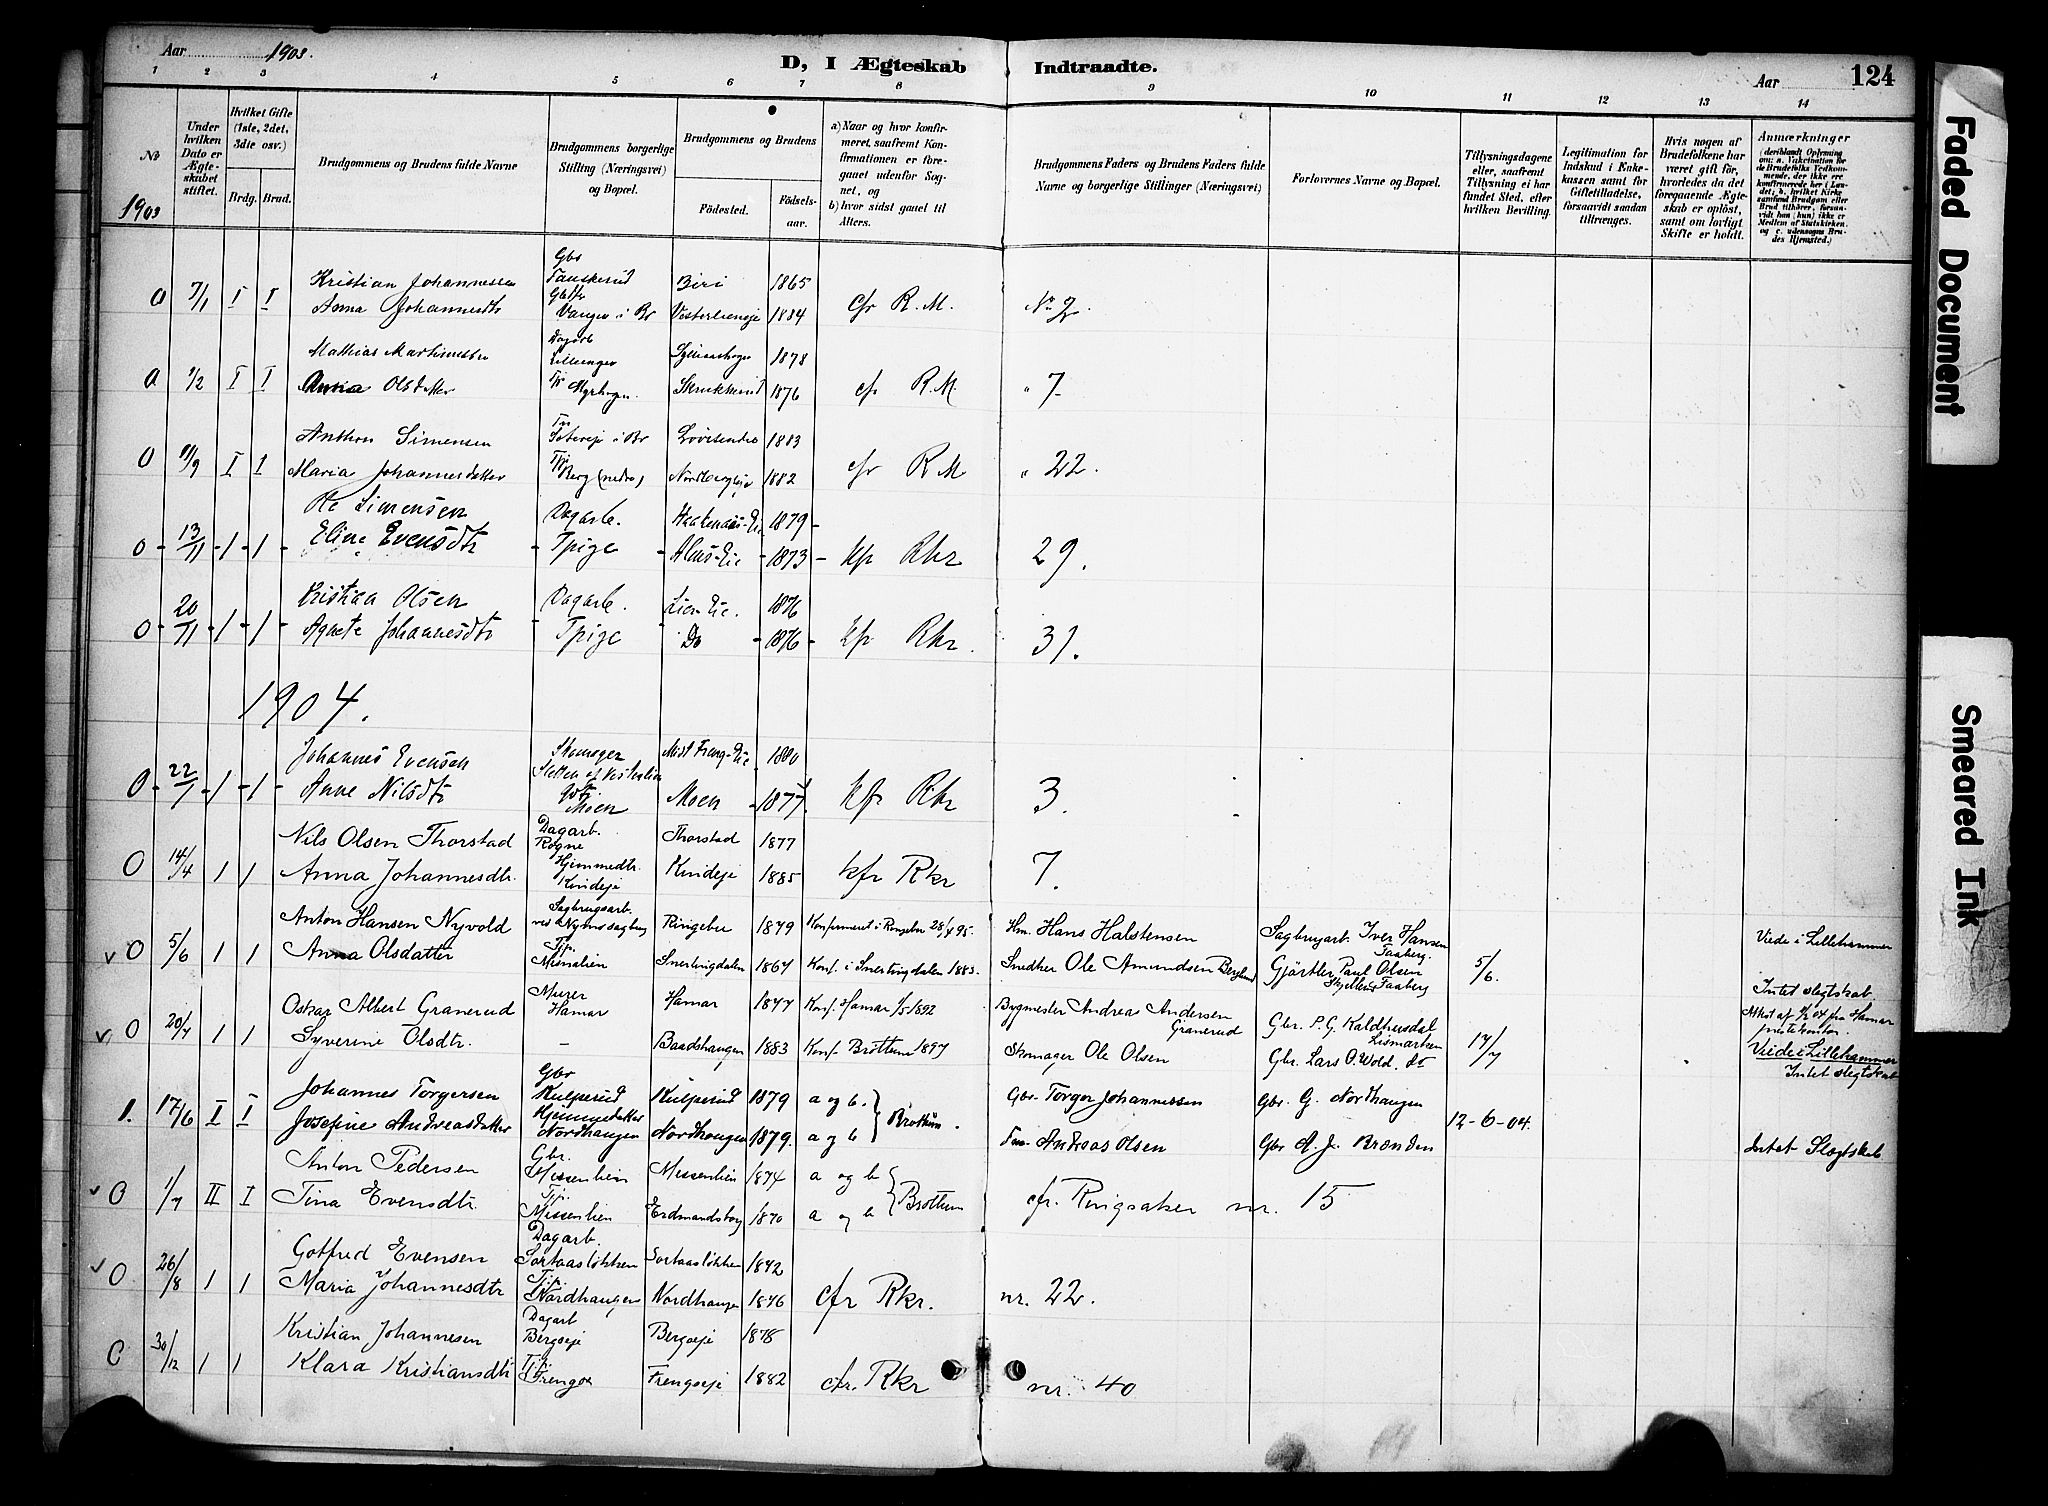 Aar 1903.
D, I Ægteskab Indtraadte.
Aar 124
1 2 3 4 5 6 7 8 9 10 11 12 13 14
No
1903
Under hvilken Dato er Ægteskabet stiftet.
Hvilket Gifte (1ste, 2det, 3die osv.)
Brdg. Brud.
Brudgommens og Brudens fulde Navne
Brudgommens borgerlige Stilling (Næringsvei) og Bopæl.
Brudgommens og Brudens
Fødested.
Fødsels-aar.
a) Naar og hvor konfirmeret, saafremt Konfirmationen er foregaaet udenfor Sognet, og
b) hvor sidst gaaet til Alters.
Brudgommens Faders og Brudens Faders fulde Navne og borgerlige Stillinger (Næringsvei)
Forlovernes Navne og Bopæl.
Tillysningsdagene eller, saafremt Tillysning ei har fundet Sted, efter hvilken Bevilling.
Legitimation for Indskud i Enkekassen samt for Giftetilladelse, forsaavidt saadan tiltrænges.
Hvis nogen af Brudefolkene har været gift før, hvorledes da det foregaaende Ægteskab er opløst, samt om lovligt Skifte er holdt.
Anmærkninger
Gbr
Kristian Johannessen Biri 1865
O 7/1 I I Anna Johannesdtr Vangen i Br 1884 cfr R. M. No 2.
Dagarb
Mathias Martinsen 1878
O 1/2 I I Anna Olsdatter Skrukkerud 1876 cfr R. M. " 7
Anthon Simensen 1883
O I I Maria Johannesdatter Berg (nedre) 1882 cfr R. M " 22.
Ole Simensen Dagarb. 1879 -
O - 13/11 - 1 - 1 - Eline Evensdtr - Tpige - 1873 - kfr Rkr 29.
Kristian Olsen Dagarb. Lien-Eie. 1876
O - 20/11 - 1 - 1 - Agnete Johannesdtr - Tpige Do - 1876 - kfr Rkr. 31.
1904.
Johannes Evensen Skomager 1880
O - 22/1 - 1 - 1 - Anne Nilsdtr Moen Moen - 1877. kfr Rkr 3.
Nils Olsen Thorstad Dagarb. Rogne Thorstad 1877
O 14/4 1 1 Anna Johannesdtr. Hjemmedtr. Kindeje Kindeje 1885 kfr Rkr 7.
Anton Hansen Nyvold Sagbrugsarb. Ringebu 1879 Konfirmeret i Ringebu Hans Halstensen Sagbrugarb. Iver Hansen Faaberg. Viede i Lillehammer
v O 5/6 1 1 Anna Olsdatter Tp. Snertingdalen 1867 Konf. i Snertingdalen 1883. Snedker Ole Amundsen Berglund Gjørtler Paul Olsen Faaberg 5/6. Intet slegtskab.
Oskar Albert Granerud Murer Hamar Hamar 1877 Konf. Hamar 1/5 1892 Bygmester Andreas Andersen Granerud Gbr. P. G. Kaldhusdal Lismarken Attest af fra Hamar prestekontor.
v O 20/7 1 1 Syverine Olsdtr. - Baadshaugen 1883 Konf. Brøttum 1897 Skomager Ole Olsen Gbr. Lars O. Wold. do 17/7 Viede i Lillehammer
Intet slegtskab
Johannes Torgersen Gbr Kulperud Kulperud 1879 a og b. Gbr. Torger Johannessen Gbr. G. Nordhaugen
1. 17/6 I I Josefine Andreasdatter Hjemmedatter Nordhaugen Nordhaugen 1879. a og b Brøttum. Andreas Olsen Gbr A. J. Brenden 12-6-04. Intet Slegtskab
Anton Pedersen Gbr. Messenlien Messenlien 1874 a og b
v O 1/7 II I Tina Evensdtr. Tp. Messenlien Erdmandsborg 1870 a og b Brøttum cfr. Ringsaker nr. 15
Gotfred Evensen Dagarb. Sortaasløkken Sortaasløkken 1872
v O 26/8 1 1 Maria Johannesdtr Tp. Nordhaugen Nordhaugen 1876 cfr Rkr. nr. 22.
Kristian Johannesen Dagarb Bergseje Bergseje 1878
O 30/12 1 1 Klara Kristiansdtr Tp. Frengseje 1882 cfr. Rkr nr. 40
Faded Document
Smeared Ink